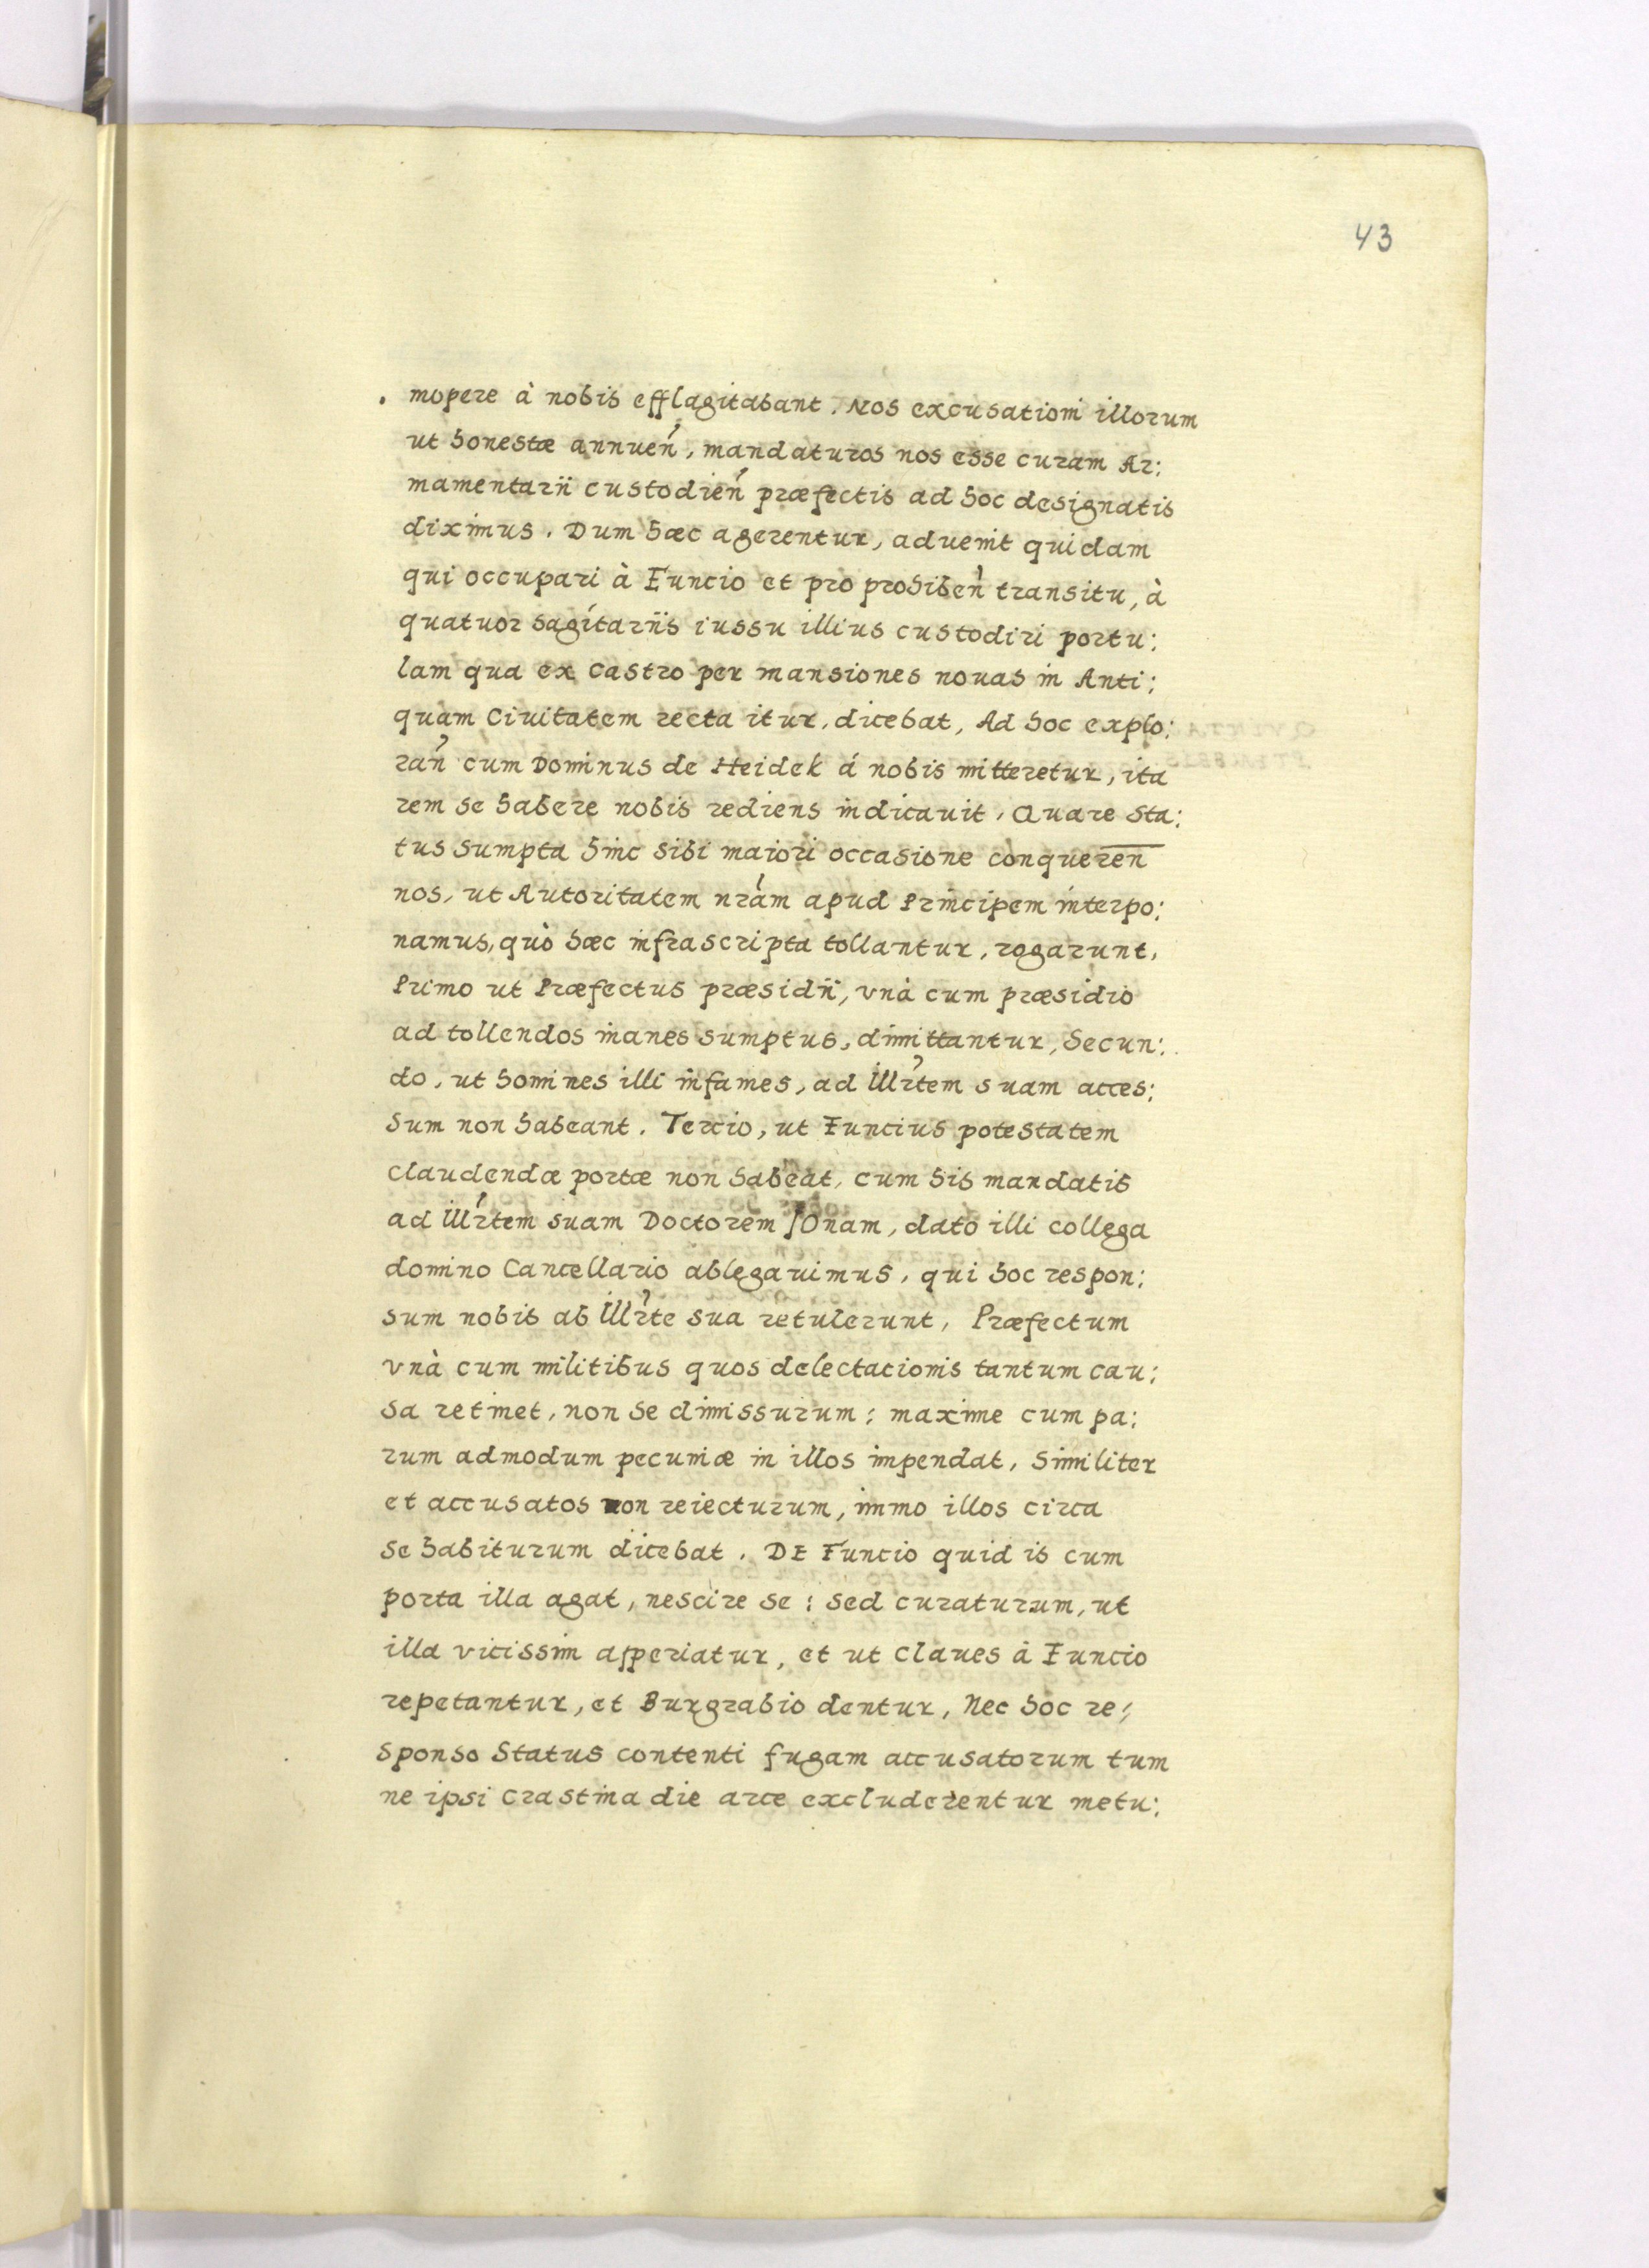 43
mopere à nobis efflagitabant. Nos excusationi illorum
ut honestæ annueń, mandaturos nos esse curam Ar:
mamentarii custodień præfectis ad hoc designatis
diximus. Dum hæc agerentur, aduenit quidam
qui occupari à Funcio et pro prohibeń transitu, à
quatuor sagitariis iussu illius custodiri portu:
lam qua ex castro per mansiones nouas in Anti:
quam Ciuitatem recta itur, dicebat, Ad hoc explo:
rań cum Dominus de Heidek á nobis mitteretur, ita
rem se habere nobis rediens indicauit, Quare Sta:
tus sumpta hinc sibi maiori occasione conqueren̄
nos, ut Autoritatem nrám apud Principem interpo:
namus, quò hæc infrascripta tollantur, rogarunt,
Primo ut Præfectus præsidii, vnà cum præsidio
ad tollendos inanes sumptus, dimittantur, Secun:
do, ut homines illi infames, ad Illr̓tem suam acces:
sum non habeant. Tercio, ut Funcius potestatem
claudendæ portæ non habeat, cum his mandatis
ad Illr̓tem suam Doctorem Jonam, dato illi collega
domino Cancellario ablegauimus, qui hoc respon:
sum nobis ab Illr̓te sua retulerunt, Præfectum
vnà cum militibus quos delectacionis tantum cau:
sa retinet, non se dimissurum: maxime cum pa:
rum admodum pecuniæ in illos impendat, Similiter
et accusatos non reiecturum, immo illos circa
se habiturum dicebat. DE Funcio quid is cum
porta illa agat, nescire se: sed curaturum, ut
illa vicissim apperiatur, et ut claues á Funcio
repetantur, et Burgrabio dentur, Nec hoc re:
sponso Status contenti fugam accusatorum tum
ne ipsi crastina die arce excluderentur metu: